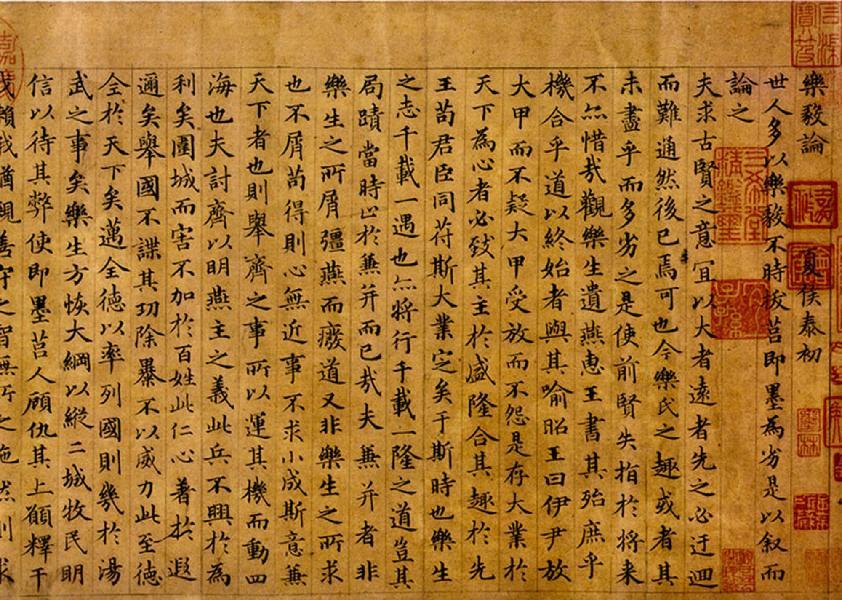 樂毅論 夏侯泰初
世人多以樂毅不時拔莒即墨為劣是以叙而
論之
夫求古賢之意宜以大者遠者先之必迂迴
而難通然後已焉可也今樂氏之趣或者其
未盡乎而多劣之是使前賢失指於將来
不亦惜哉觀樂生遺燕惠王書其殆庶乎
機合乎道以終始者與其喻昭王曰伊尹放
大甲而不疑大甲受放而不怨是存大業於
天下為心者必致其主於盛隆合其趣於先
王苟君臣同苻斯大業定矣于斯時也樂生
之志千載一遇也亦將行千載一隆之道豈其
局蹟當時止於兼并而已哉夫兼并者非
樂生之所屑彊燕而癈道又非樂生之所求
也不屑苟得則心無近事不求小成斯意兼
天下者也則舉齊之事所以運其機而動四
海也夫討齊以明燕主之義此兵不興於為
利矣圍城而害不加於百姓此仁心著於遐
邇矣舉國不謀其功除暴不以威力此至德
全於天下矣邁全德以率列國則幾於湯
武之事矣樂生方恢大綱以縱二城牧民明
信以待其弊使即墨莒人顧仇其上願釋干
我猶親善守之智無所之施然則求